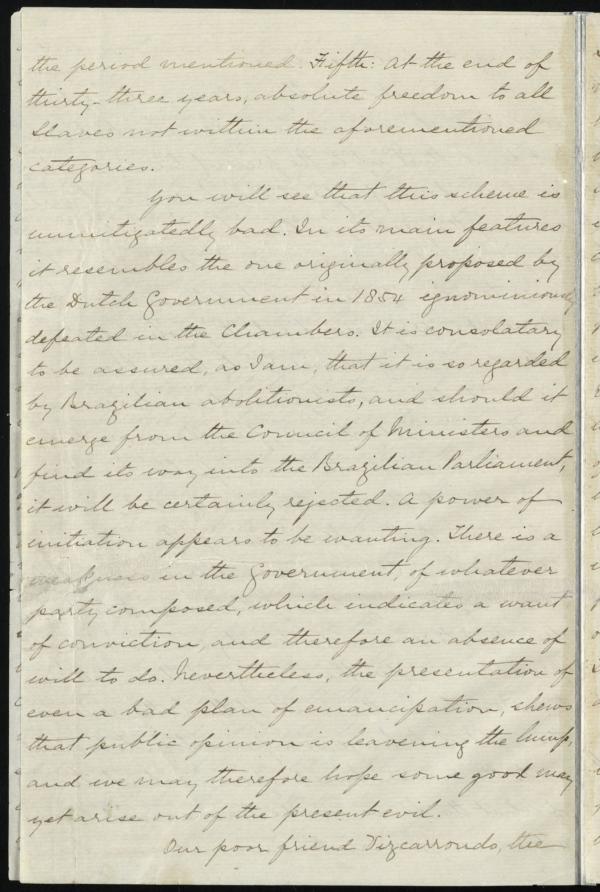 the period mentioned. Fifth: At the end of
thirty-three years, absolute freedom to all
slaves not within the aforementioned
categories.
You will see that this scheme is
unmitigatedly bad. In its main features
it resembles the one originally proposed by
the Dutch Government in 1854 ignominiously
defeated in the Chambers. It is consolatary
to be assured, as I am, that it is so regarded
by Brazilian abolitionists, and should it
emerge from the Council of Ministers and
find its way into the Brazilian Parliament,
it will be certainly rejected. A power of
initiation appears to be wanting. There is a
weakness in the Government, of whatever
party composed, which indicates a want
of conviction, and therefore an absence of
will to do. Nevertheless, the presentation of
even a bad plan of emancipation, shews
that public opinion is leavening the lump,
and we may therefore hope some good may
yet arise out of the present evil.
Our poor friend Vizcarrondo, the